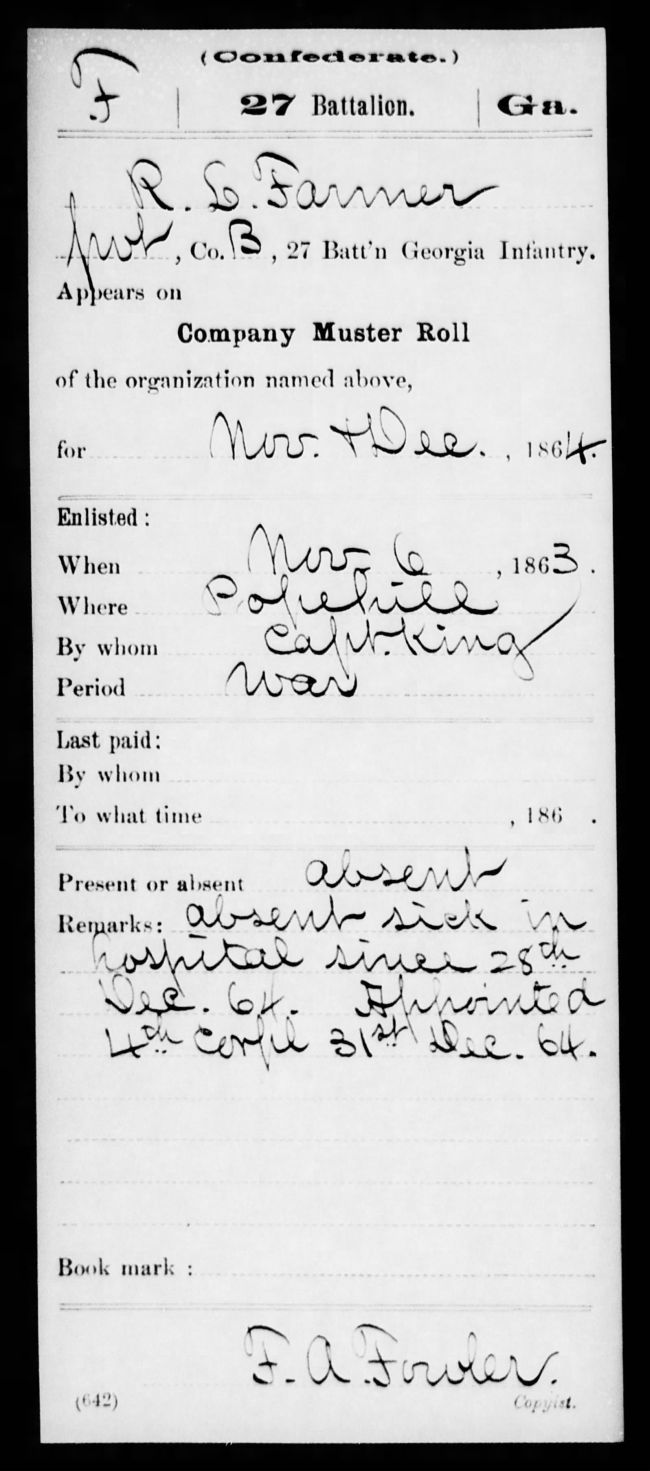 (Confederate.)
F | 27 Battalion. | Ga.
R. L. Farmer
pvt, Co. B, 27 Batt'n Georgia Infantry.
Appears on
Company Muster Roll
of the organization named above,
for Nov. & Dec., 1864.
Enlisted:
When Nov 6, 1863.
Where Popehill
By whom Capt. King
Period War
Last paid:
By whom
To what time , 186 .
Present or absent absent
Remarks: absent sick in
hospital since 28th
Dec. 64. Appointed
4th Corpl 31st Dec. 64.
Book mark:
F. A. Fowler.
(642) Copyist.